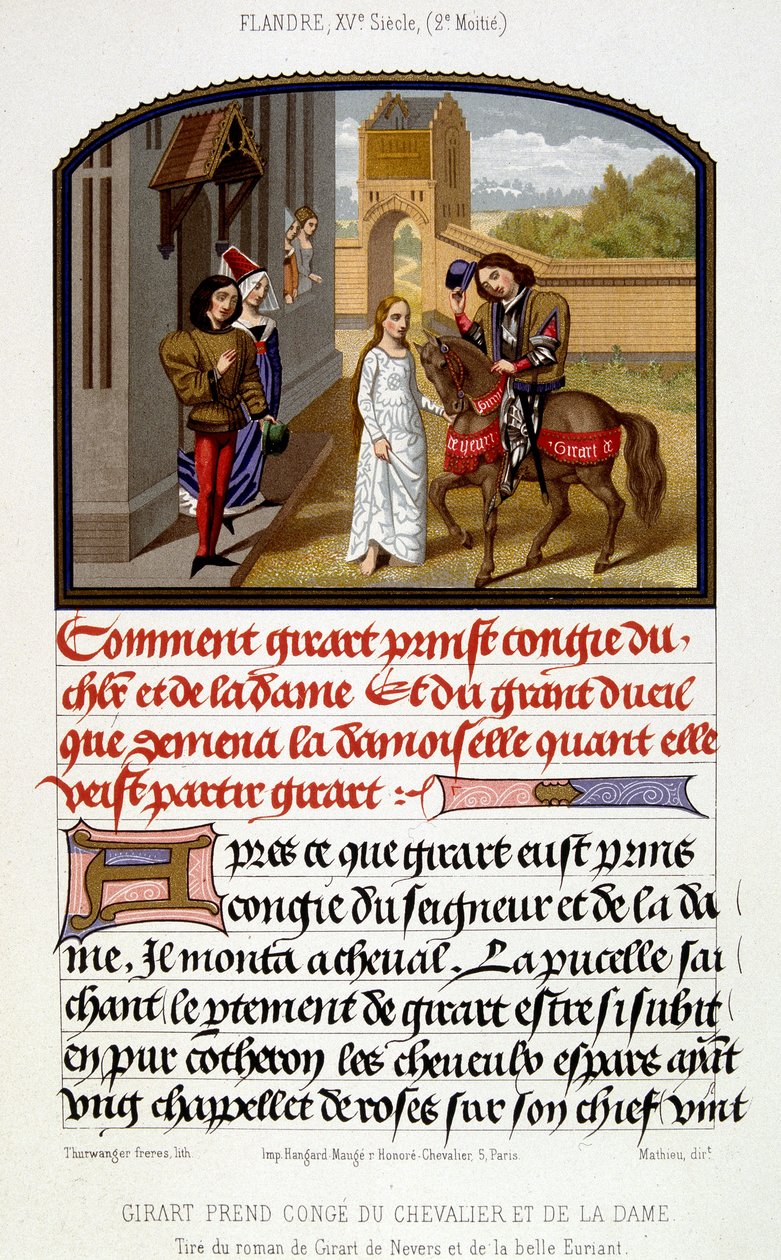 FLANDRE, XVe Siècle, (2e Moitié.)
Girart
de Neuers
Girart de
Comment girart prinst congie du,
chlr et de la dame Et du grant dueil
que demena la damoiselle quant elle
veist partir girart :~
Apres ce que girart eust prins
congie du seigneur et de la da
me, Il monta a cheual. La pucelle sai
chant le ptement de girart estre si subit
en pur cotheron les cheueulx espars ayãt
vng chappellet de roses sur son chief vint
Thurwanger freres, lith.
Imp. Hangard-Maugé r. Honoré-Chevalier, 5, Paris.
Mathieu, dirt.
GIRART PREND CONGÉ DU CHEVALIER ET DE LA DAME.
Tiré du roman de Girart de Nevers et de la belle Euriant.